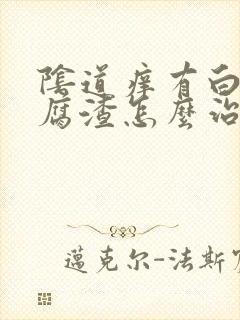 陰道痒有白
腐渣怎麽治
邁克尔-法斯